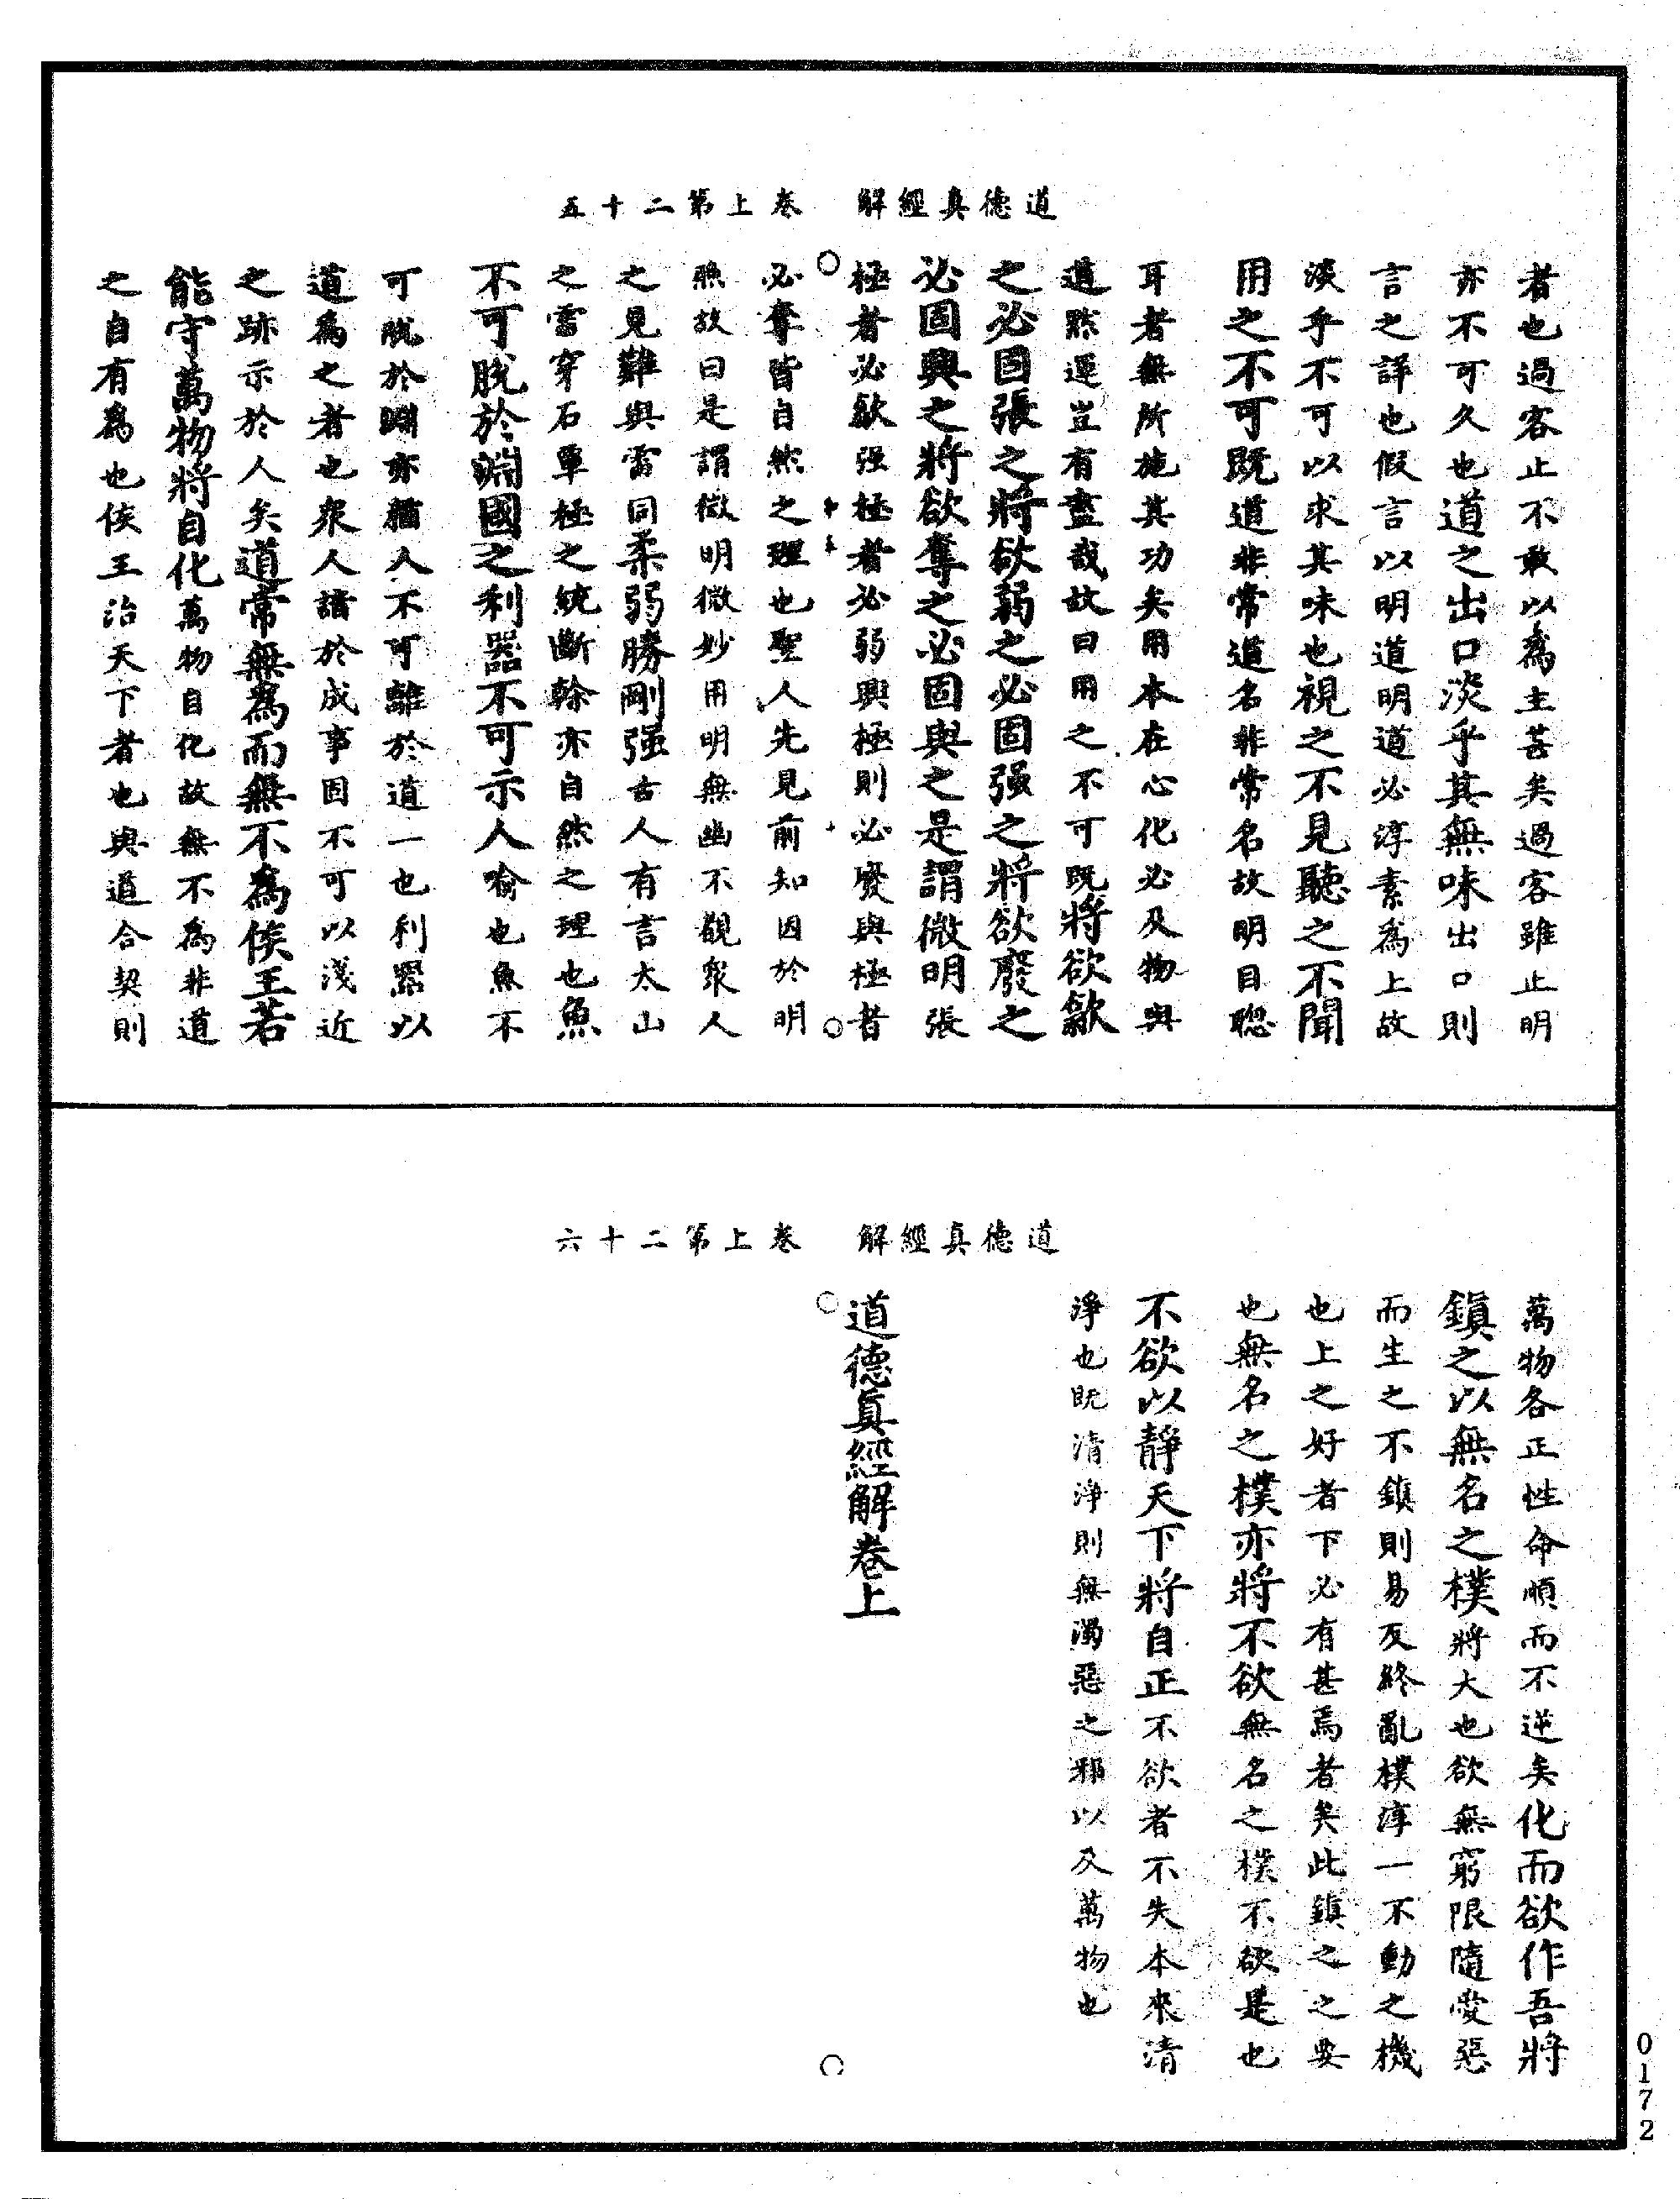 道德真經解　卷上第二十五
者也過客止不敢以為主甚矣過客雖止明
亦不可久也道之出口淡乎其無味出口則
言之詳也假言以明道明道必淳素為上故
淡乎不可以求其味也視之不見聽之不聞
用之不可既道非常道名非常名故明目聰
耳者無所施其功矣用本在心化必及物與
道點運豈有盡哉故曰用之不可既將欲歙
之必固張之將欲弱之必固强之將欲廢之
必固興之將欲奪之必固與之是謂微明張
極者必歙强極者必弱興極則必廢與極者
必奪皆自然之理也聖人先見前知因於明
焉故曰是謂微明微妙用明無幽不觀衆人
之見難與雷同柔弱勝剛强古人有言太山
之霤穿石單極之統斷榦亦自然之理也魚
不可脫於淵國之利器不可示人喻也魚不
可脫於淵亦猶人不可離於道一也利器以
道為之者也衆人諳於成事固不可以淺近
之跡示於人矣道常無為而無不為侯王若
能守萬物將自化萬物自化故無不為非道
之自有為也侯王治天下者也與道合契則
道德真經解　卷上第二十六
萬物各正性命順而不逆矣化而欲作吾將
鎮之以無名之樸將大也欲無窮限隨愛惡
而生之不鎮則易反終亂樸淳一不動之機
也上之好者下必有甚焉者矣此鎮之之要
也無名之樸亦將不欲無名之樸不欲是也
不欲以靜天下將自正不欲者不失本來清
淨也既清淨則無濁惡之邪以及萬物也
道德真經解卷上
0172